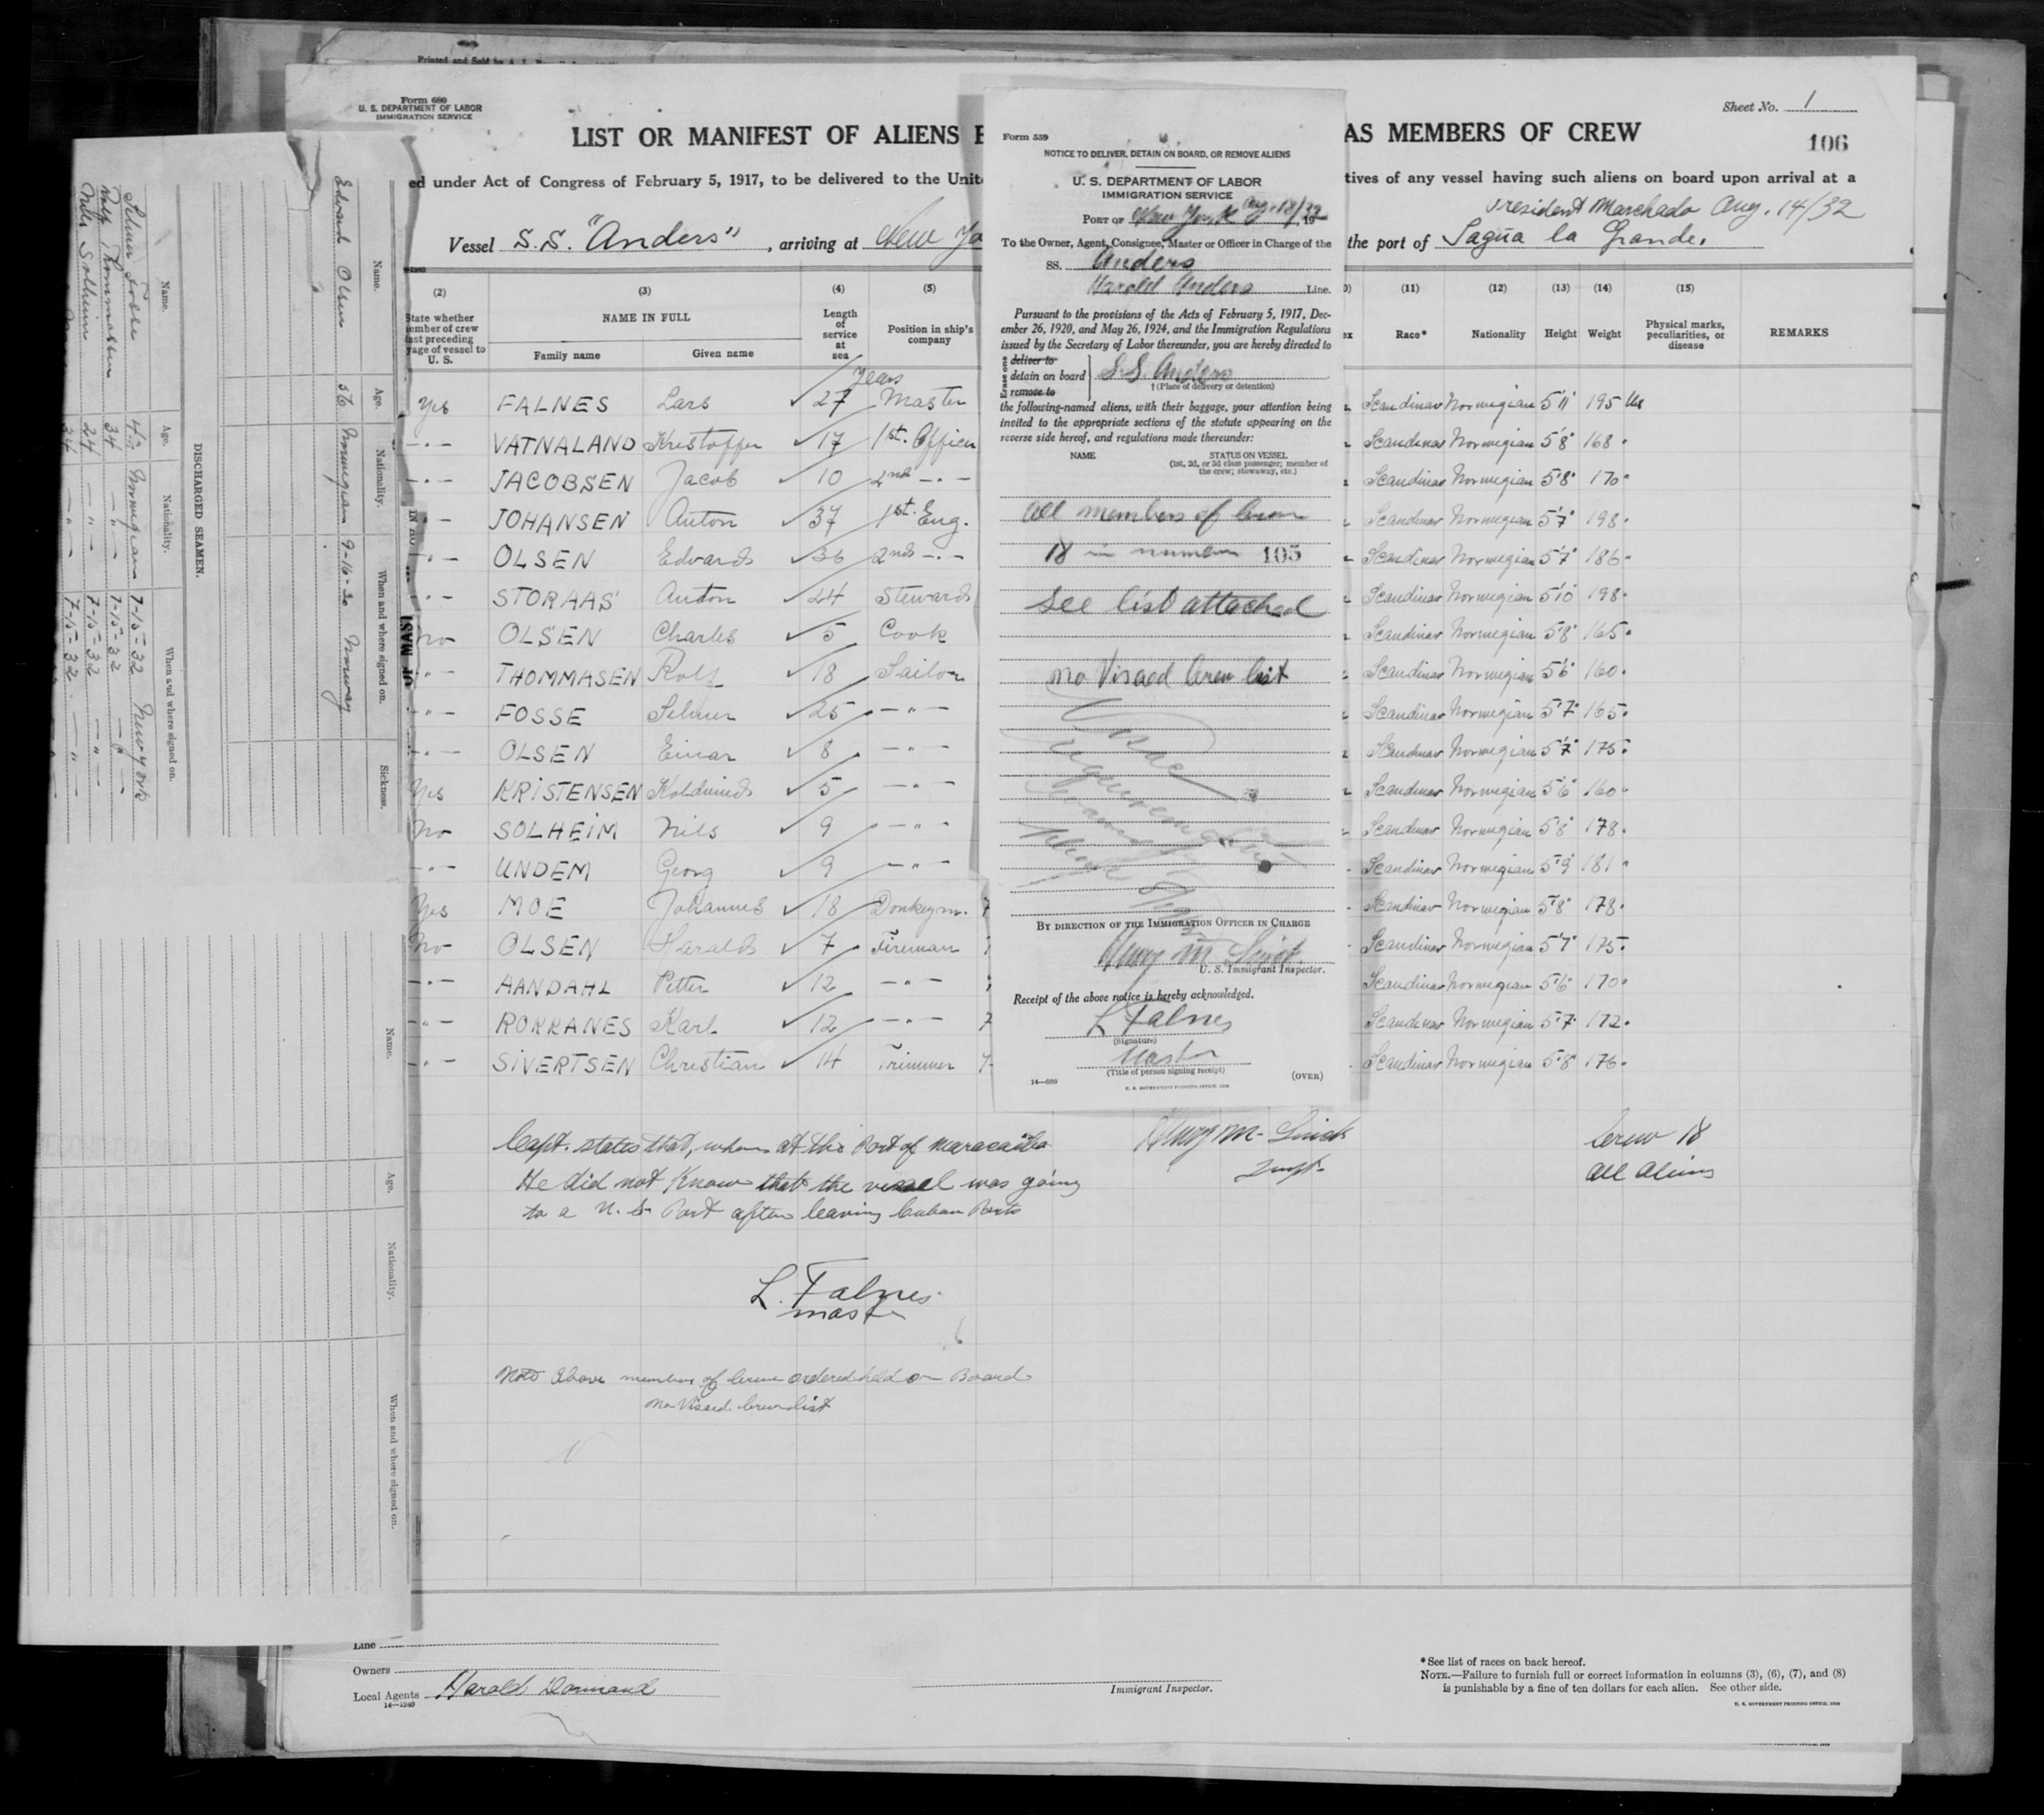 Form 680
U. S. DEPARTMENT OF LABOR
IMMIGRATION SERVICE
Sheet No. 1
106
LIST OR MANIFEST OF ALIENS
AS MEMBERS OF CREW
ed under Act of Congress of February 5, 1917, to be delivered to the Unit
tives of any vessel having such aliens on board upon arrival at a
President Marchado Aug. 14/32
Vessel S.S. "Anders", arriving at New Yo
the port of Sagua la Grande.
(2) (3) (4) (5)
State whether
ember of crew
ast preceding
yage of vessel to
U. S.
NAME IN FULL
Family name Given name
Length
of
service
at
sea
Position in ship's
company
(11) (12) (13) (14) (15)
Race* Nationality Height Weight
Physical marks,
peculiarities, or
disease
REMARKS
Years
Yes FALNES Lars 27 Master Scandinav Norwegian 5'11" 195 lbs
-"- VATNALAND Kristoffer 17 1st. Officer Scandinav Norwegian 5'8" 168 "
-"- JACOBSEN Jacob 10 2nd -"- Scandinav Norwegian 5'8" 170 "
-"- JOHANSEN Anton 37 1st. Eng. Scandinav Norwegian 5'7" 198 "
-"- OLSEN Edvard 36 2nd -"- Scandinav Norwegian 5'7" 186 "
-"- STORAAS Anton 24 Steward Scandinav Norwegian 5'10" 198 "
No OLSEN Charles 5 Cook Scandinav Norwegian 5'8" 165 "
-"- THOMMASEN Rolf 18 Sailor Scandinav Norwegian 5'6" 160 "
-"- FOSSE Selmer 25 -"- Scandinav Norwegian 5'7" 165 "
-"- OLSEN Einar 8 -"- Scandinav Norwegian 5'7" 175 "
Yes KRISTENSEN 5 -"- Scandinav Norwegian 5'6" 160 "
No SOLHEIM Nils 9 -"- Scandinav Norwegian 5'8" 178 "
-"- UNDEM Georg 9 -"- Scandinav Norwegian 5'9" 181 "
Yes MOE Johannes 18 Donkeym. Scandinav Norwegian 5'8" 178 "
No OLSEN Harald 7 Fireman Scandinav Norwegian 5'7" 175 "
-"- AANDAHL Petter 12 -"- Scandinav Norwegian 5'6" 170 "
-"- ROKKANES Karl 12 -"- Scandinav Norwegian 5'7" 172 "
-"- SIVERTSEN Christian 14 Trimmer Scandinav Norwegian 5'8" 176 "
Capt. states that, when at the Port of Maracaibo
He did not know that the vessel was going
to a U. S. Port after leaving Cuban Ports
L. Falnes
master
Henry M.
Insp.
Crew 18
all aliens
Note Above members of crew ordered held on Board
No Visaed Crew list
Line
Owners
Local Agents Harold
14—1240
Immigrant Inspector.
*See list of races on back hereof.
NOTE.—Failure to furnish full or correct information in columns (3), (6), (7), and (8)
is punishable by a fine of ten dollars for each alien. See other side.
Form 559
NOTICE TO DELIVER, DETAIN ON BOARD, OR REMOVE ALIENS
U. S. DEPARTMENT OF LABOR
IMMIGRATION SERVICE
PORT OF New York Aug. 18/32, 19
To the Owner, Agent, Consignee, Master or Officer in Charge of the
SS. Anders
Harold Anders Line.
Pursuant to the provisions of the Acts of February 5, 1917, Dec-
ember 26, 1920, and May 26, 1924, and the Immigration Regulations
issued by the Secretary of Labor thereunder, you are hereby directed to
Erase one
deliver to
detain on board
remove to
S.S. Anders
† (Place of delivery or detention)
the following-named aliens, with their baggage, your attention being
invited to the appropriate sections of the statute appearing on the
reverse side hereof, and regulations made thereunder:
NAME
STATUS ON VESSEL
(1st, 2d, or 3d class passenger; member of
the crew; stowaway, etc.)
All members of Crew
18 in number 105
See list attached
no Visaed Crew list
BY DIRECTION OF THE IMMIGRATION OFFICER IN CHARGE
Henry M.
U. S. Immigrant Inspector.
Receipt of the above notice is hereby acknowledged.
L Falnes
(Signature)
Master
(Title of person signing receipt)
14—600
(OVER)
DISCHARGED SEAMEN.
Name. Age. Nationality. When and where signed on.
Selmer Fosse 42 Norwegian 7-15-32 New york
Rolf Thommassen 34 -"- 7-15-32 -"-
Nils Solheim 24 -"- 7-15-32 -"-
34 -"- 7-15-32 -"-
Name. Age. Nationality. When and where signed on. Sickness.
Edvard Olsen 56 Norwegian 9-16-30 Norway
Name. Age. Nationality. When and where signed on.